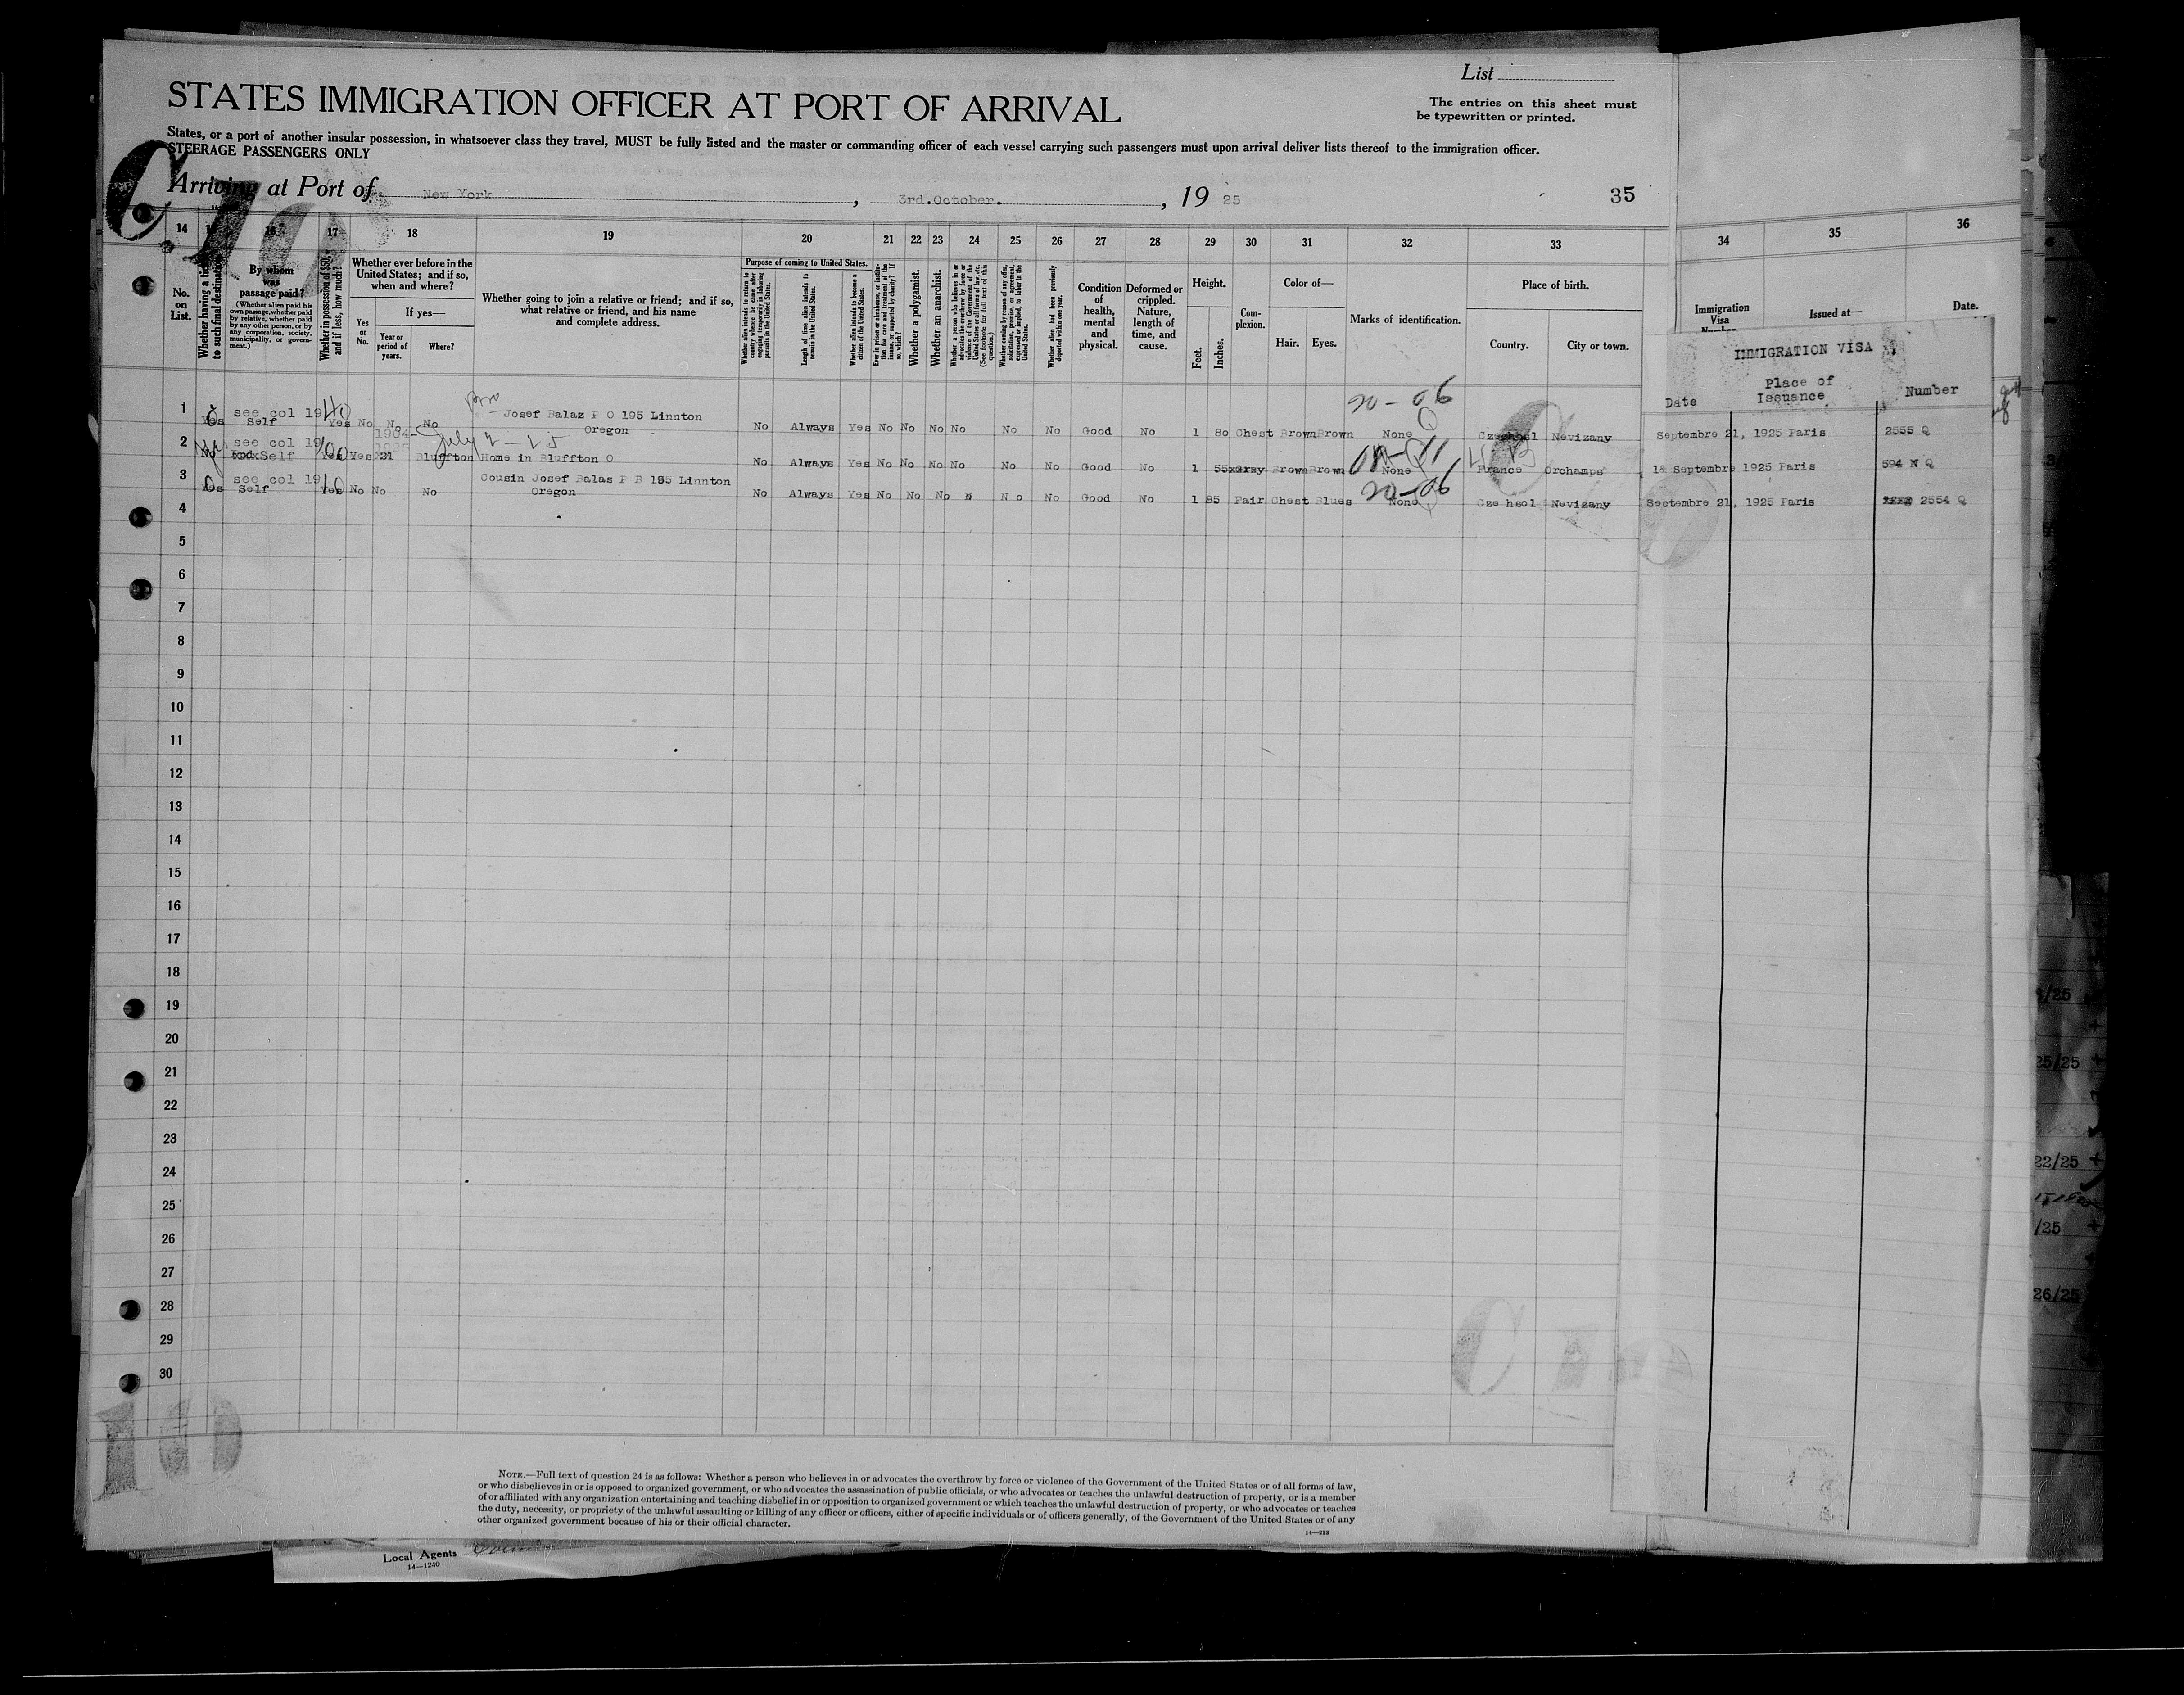 List
STATES IMMIGRATION OFFICER AT PORT OF ARRIVAL
The entries on this sheet must
be typewritten or printed.
States, or a port of another insular possession, in whatsoever class they travel, MUST be fully listed and the master or commanding officer of each vessel carrying such passengers must upon arrival deliver lists thereof to the immigration officer.
STEERAGE PASSENGERS ONLY
Arriving at Port of New York, 3rd.October., 19 25
35
14 16 17 18 19 20 21 22 23 24 25 26 27 28 29 30 31 32 33 34 35 36
No. on List.
Whether having a ticket to such final destination
By whom was passage paid?
(Whether alien paid his own passage, whether paid by relative, whether paid by any other person, or by any corporation, society, municipality, or government.)
Whether in possession of $50, and if less, how much?
Whether ever before in the United States; and if so, when and where?
Yes or No.
If yes—
Year or period of years.
Where?
Whether going to join a relative or friend; and if so, what relative or friend, and his name and complete address.
Purpose of coming to United States.
Whether alien intends to return to country whence he came after engaging temporarily in laboring pursuits in the United States.
Length of time alien intends to remain in the United States.
Whether alien intends to become a citizen of the United States.
Ever in prison or almshouse, or institution for care and treatment of the insane, or supported by charity? If so, which?
Whether a polygamist.
Whether an anarchist.
Whether a person who believes in or advocates the overthrow by force or violence of the Government of the United States or all forms of law, etc. (See footnote for full text of this question.)
Whether coming by reason of any offer, solicitation, promise, or agreement, expressed or implied, to labor in the United States.
Whether alien had been previously deported within one year.
Condition of health, mental and physical.
Deformed or crippled. Nature, length of time, and cause.
Height.
Feet.
Inches.
Complexion.
Color of—
Hair.
Eyes.
Marks of identification.
Place of birth.
Country.
City or town.
Immigration Visa
Issued at—
Date.
IMMIGRATION VISA
Date
Place of Issuance
Number
20-06
1 see col 19 40 Josef Balaz P O 195 Linnton
Yes Self Yes No No No Oregon No Always Yes No No No No No No Good No 1 80 Chest Brown Brown None Nevizany Septembre 21, 1925 Paris 2555 Q
2 see col 19 1904- July
No Self Yes Yes 21 Bluffton Home in Bluffton O No Always Yes No No No No No No Good No 1 55 Gray Brown Brown None France Orchamps Septembre 1925 Paris 594 N Q
20-06
3 see col 19 Cousin Josef Balas P B 195 Linnton
Yes Self Yes No No No Oregon No Always Yes No No No No No Good No 1 85 Fair Chest Blues None Nevizany Septembre 21, 1925 Paris 2554 Q
4
5
6
7
8
9
10
11
12
13
14
15
16
17
18
19
20
21
22
23
24
25
26
27
28
29
30
25/25
22/25
/25
26/25
NOTE.—Full text of question 24 is as follows: Whether a person who believes in or advocates the overthrow by force or violence of the Government of the United States or of all forms of law,
or who disbelieves in or is opposed to organized government, or who advocates the assassination of public officials, or who advocates or teaches the unlawful destruction of property, or is a member
of or affiliated with any organization entertaining and teaching disbelief in or opposition to organized government or which teaches the unlawful destruction of property, or who advocates or teaches
the duty, necessity, or propriety of the unlawful assaulting or killing of any officer or officers, either of specific individuals or of officers generally, of the Government of the United States or of any
other organized government because of his or their official character.
14—213
Local Agents
14—1240